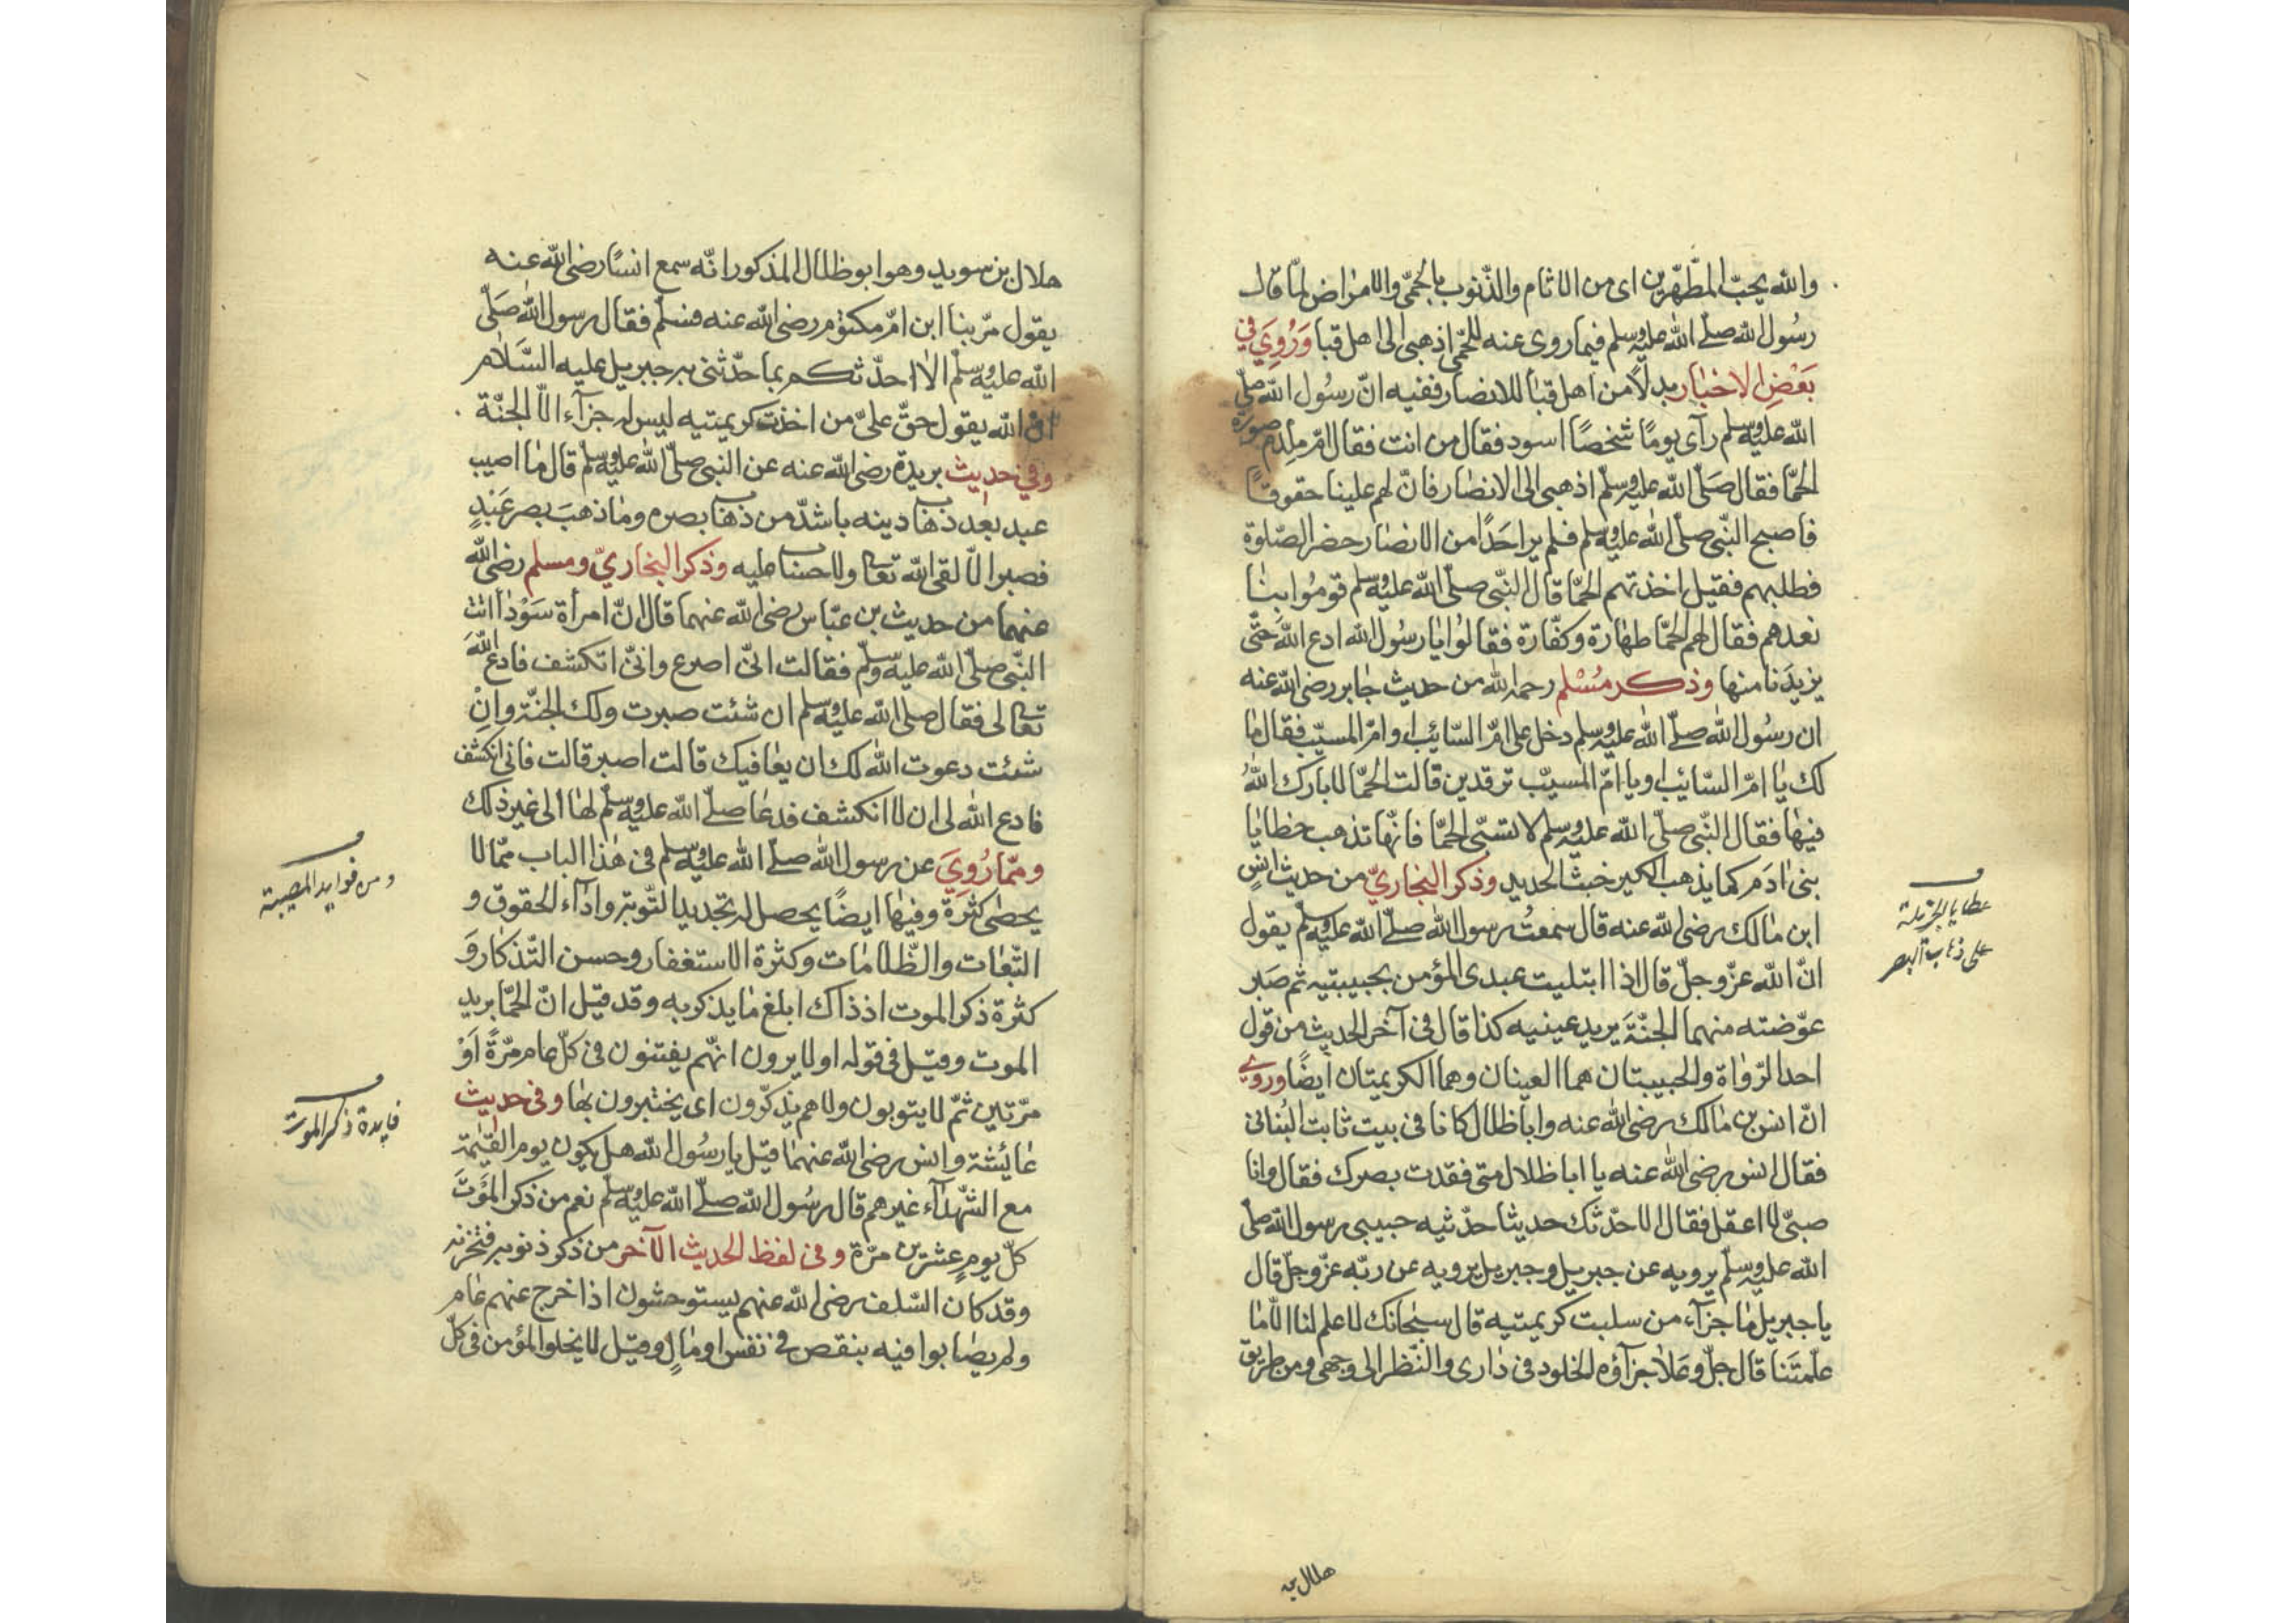 والله يحبّ المطّهّرين اى من الاثام والذّنوب بالحمّى والامراض لمّا قال
رسُول الله صلّى الله عليه وسلم فيما روى عنه للحمّى اذهبى الى اهل قبا وَرُوِيَ في
بَعْضِ الاخبار بدلاً من اهل قبا للانصار ففيه انّ رسُول الله صلّى
الله عليه وسلم رآى يومًا شخصًا اسود فقال من انت فقال امّ ملدم صورة
الحمّا فقال صَلّى الله عليه وسلّم اذهبى الى الانصار فانّ لهم علينا حقوقًا
فاصبح النّبى صلّى الله عليه وسلم فلم ير احَدًا من الانصار حضر الصّلوة
فطلبهم فقيل اخذتهم الحمّا قال النّبى صلّى الله عليه وسلّم قومُوا بنا
نعدهم فقال لهم الحمّا طهارة وكفّارة فقالوُا يا رسُول الله ادع اللهَ حتّى
يزيدَنا منها وذكر مُسْلم رحمه الله من حديث جابر رضى الله عنه
ان رسُول الله صلّى الله عليه وسلم دخل على امّ السّايب او امّ المسيّب فقال ما
لك يا امّ السّايب او يا امّ المسيّب ترقدين قالت الحمّا لا بارك اللهُ
فيها فقال النّبى صلّى الله عليه وسلم لا تسبّى الحمّا فانّها تذهب خطايا
بنى ادَم كما يذهب الكير خبث الحديد وذكر البخاريّ من حديث انسٍ
ابن مالك رضى الله عنه قال سمعتُ رسول الله صلّى الله عليه وسلّم يقول
انّ الله عزّ وجلّ قال اذا ابتليت عبدى المؤمن بحبيبتيه ثم صَبر
عوّضته منهما الجنّةَ يريد عينيه كذا قال فى آخر الحديث من قول
احد الرّواة والحبيبتان هما العينان وهما الكريمتان أيضًا وروي
انّ انس بن مالك رضى الله عنه وابا ظلال كانا فى بيت ثابت البُنانى
فقال انس رضى الله عنه يا ابا ظلال متى فقدت بصرك فقال وانا
صبىّ لا اعقل فقال الا احدّثك حديثا حدّثنيه حبيبى رسول الله صلّى
الله عليه وسلّم يرويه عن جبريل وجبريل يرويه عن ربّه عزّ وجلّ قال
يا جبريل ما جزآء من سلبت كريمتيه قال سبحانك لا علم لنا الّا ما
علّمتَنا قال جلّ وعَلا جزآؤه الخلود فى دارى والنّظر الى وجهى ومن طريق
عطايا الجزيلة
على ذهاب البصر
هلال بن
هلال بن سويد وهو ابو ظلال المذكور انّه سمع انسًا رضى الله عنه
يقول مرّ بنا ابن امّ مكتوم رضى الله عنه فسلّم فقال رسول الله صَلّى
الله عليه وسلّم الا احدّثكم بما حدّثنى به جبريل عليه السَّلام
انّ الله يقول حقّ علىّ من اخذت كريمتيه ليس له جزآء الّا الجنّة
وفي حديث بريدة رضى الله عنه عن النبى صلّى الله عليه وسلّم قال ما اصيب
عبد بعد ذهاب دينه باشدّ من ذهاب بصره وما ذهبَ بصر عَبْدٍ
فصبر الّا لقى الله تعالى ولا حساب عليه وذكر البخاريّ ومسلم رضى الله
عنهما من حديث بن عبّاس رضى الله عنهما قال انّ امرأة سَوْدآ اتت
النّبى صلّى الله عليه وسلّم فقالت انّى اصرع وانّى اتكشف فادع اللهَ
تعالى فقال صلى الله عليه وسلم ان شئت صبرت ولك الجنّة وانْ
شئت دعوت الله لك ان يعافيك قالت اصبر قالت فانى انكشف
فادع الله لى ان لا انكشف فدعا صلّى الله عليه وسلّم لها الى غير ذلك
وممّا رُوِيَ عن رسول الله صلّى الله عليه وسلم فى هذا الباب ممّا لا
يحصى كثرة وفيها ايضًا يحصل له تجديد التّوبة واداء الحقوق و
التّبعات والظّلامات وكثرة الاستغفار وحسن التّذكار وَ
كثرة ذكر الموت اذ ذاك ابلغ ما يذكر به وقد قيل انّ الحمّا بريد
الموت وقيل فى قوله اولا يرون انّهم يفتنون فى كلّ عام مرّةً اَوْ
مرّتين ثمّ لا يتوبون ولا هم يذكّرون اى يختبرون بها وفى حديث
عائيشة وانس رضى الله عنهما قيل يا رسُول الله هل يكون يوم القيمة
مع الشّهدآء غيرهم قال رسُول الله صلّى الله عليه وسلّم نعم من ذكر الموْتَ
كلّ يومٍ عشرين مرّة وفى لفظ الحديث الآخر من ذكر ذنوبه فتحزنه
وقد كان السّلف رضى الله عنهم يستوحشون اذا خرج عنهم عام
ولم يصابوا فيه بنقص فى نفس او مالٍ وقيل لا يخلوا المؤمن فى كلّ
ومن فوايد المصيبة
فايدة ذكر الموت